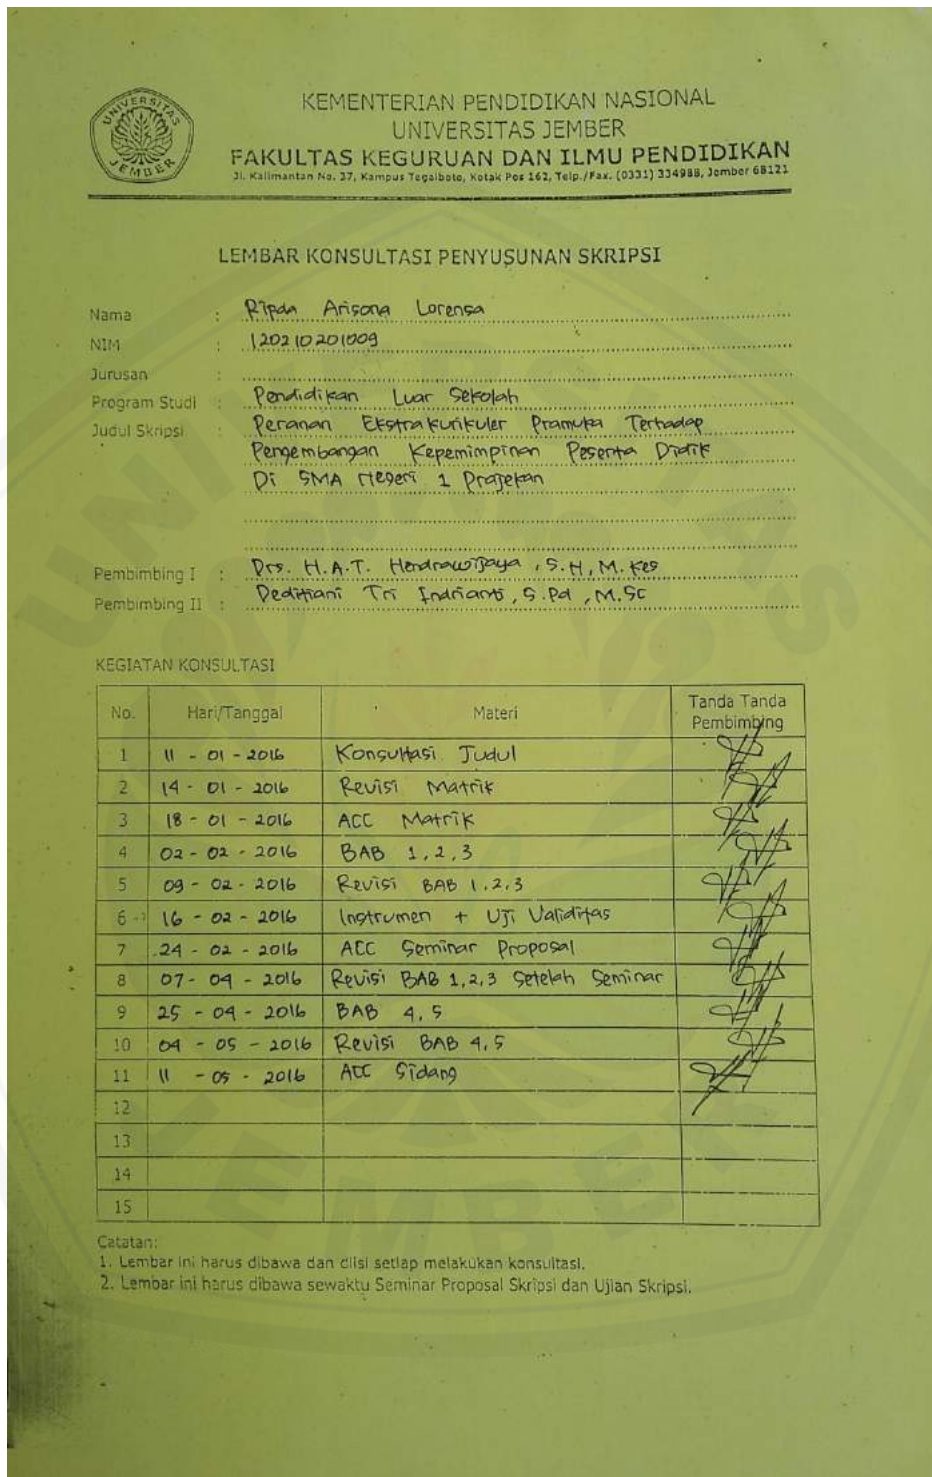 UNIVERSITAS
JEMBER
KEMENTERIAN PENDIDIKAN NASIONAL
UNIVERSITAS JEMBER
FAKULTAS KEGURUAN DAN ILMU PENDIDIKAN
Jl. Kalimantan No. 37, Kampus Tegalboto, Kotak Pos 162, Telp./Fax. (0331) 334988, Jember 68121
LEMBAR KONSULTASI PENYUSUNAN SKRIPSI
Nama : Ripda Arisona Lorensa
NIM : 120210201009
Jurusan :
Program Studi : Pendidikan Luar Sekolah
Judul Skripsi : Peranan Ekstrakurikuler Pramuka Terhadap
Pengembangan Kepemimpinan Peserta Didik
Di SMA Negeri 1 Prajekan
Pembimbing I : Drs. H.A.T. Hendrawijaya, S.H, M.Kes
Pembimbing II : Deditiani Tri Indrianti, S.Pd, M.Sc
KEGIATAN KONSULTASI
No. Hari/Tanggal Materi Tanda Tanda Pembimbing
1 11 - 01 - 2016 Konsultasi Judul
2 14 - 01 - 2016 Revisi Matrik
3 18 - 01 - 2016 ACC Matrik
4 02 - 02 - 2016 BAB 1,2,3
5 09 - 02 - 2016 Revisi BAB 1,2,3
6 16 - 02 - 2016 Instrumen + Uji Validitas
7 24 - 02 - 2016 ACC Seminar Proposal
8 07 - 04 - 2016 Revisi BAB 1,2,3 Setelah Seminar
9 25 - 04 - 2016 BAB 4,5
10 04 - 05 - 2016 Revisi BAB 4,5
11 11 - 05 - 2016 ACC Sidang
12
13
14
15
Catatan:
1. Lembar ini harus dibawa dan diisi setiap melakukan konsultasi.
2. Lembar ini harus dibawa sewaktu Seminar Proposal Skripsi dan Ujian Skripsi.